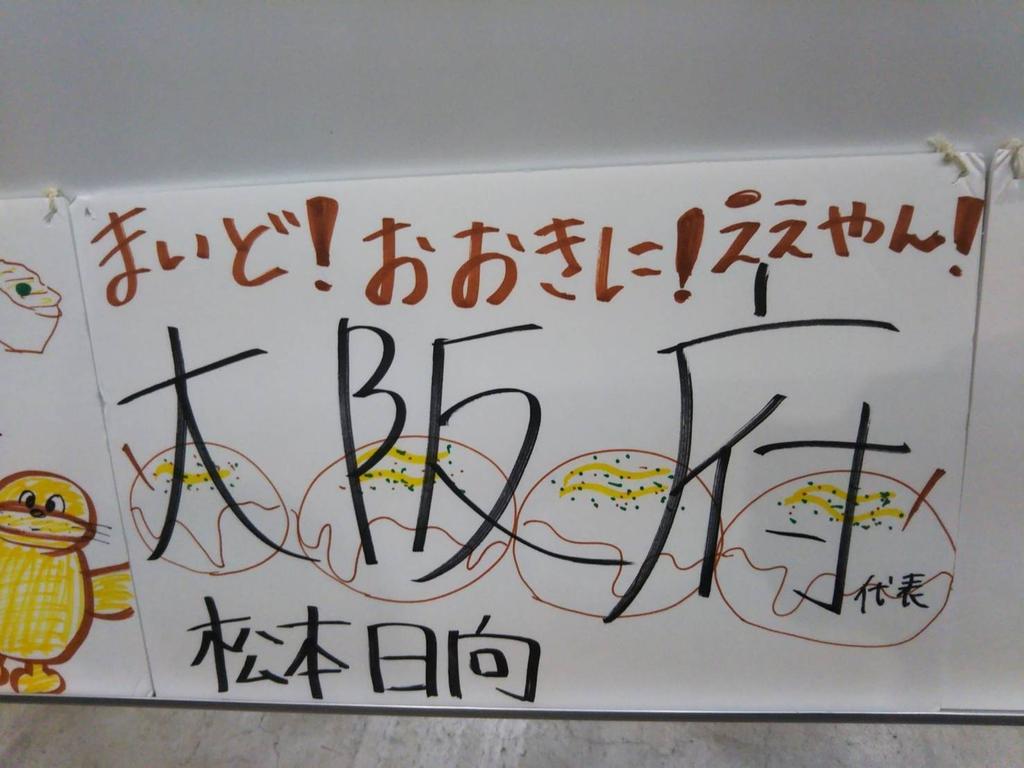 まいど!おおきに!ええやん!
大阪府
代表
松本日向